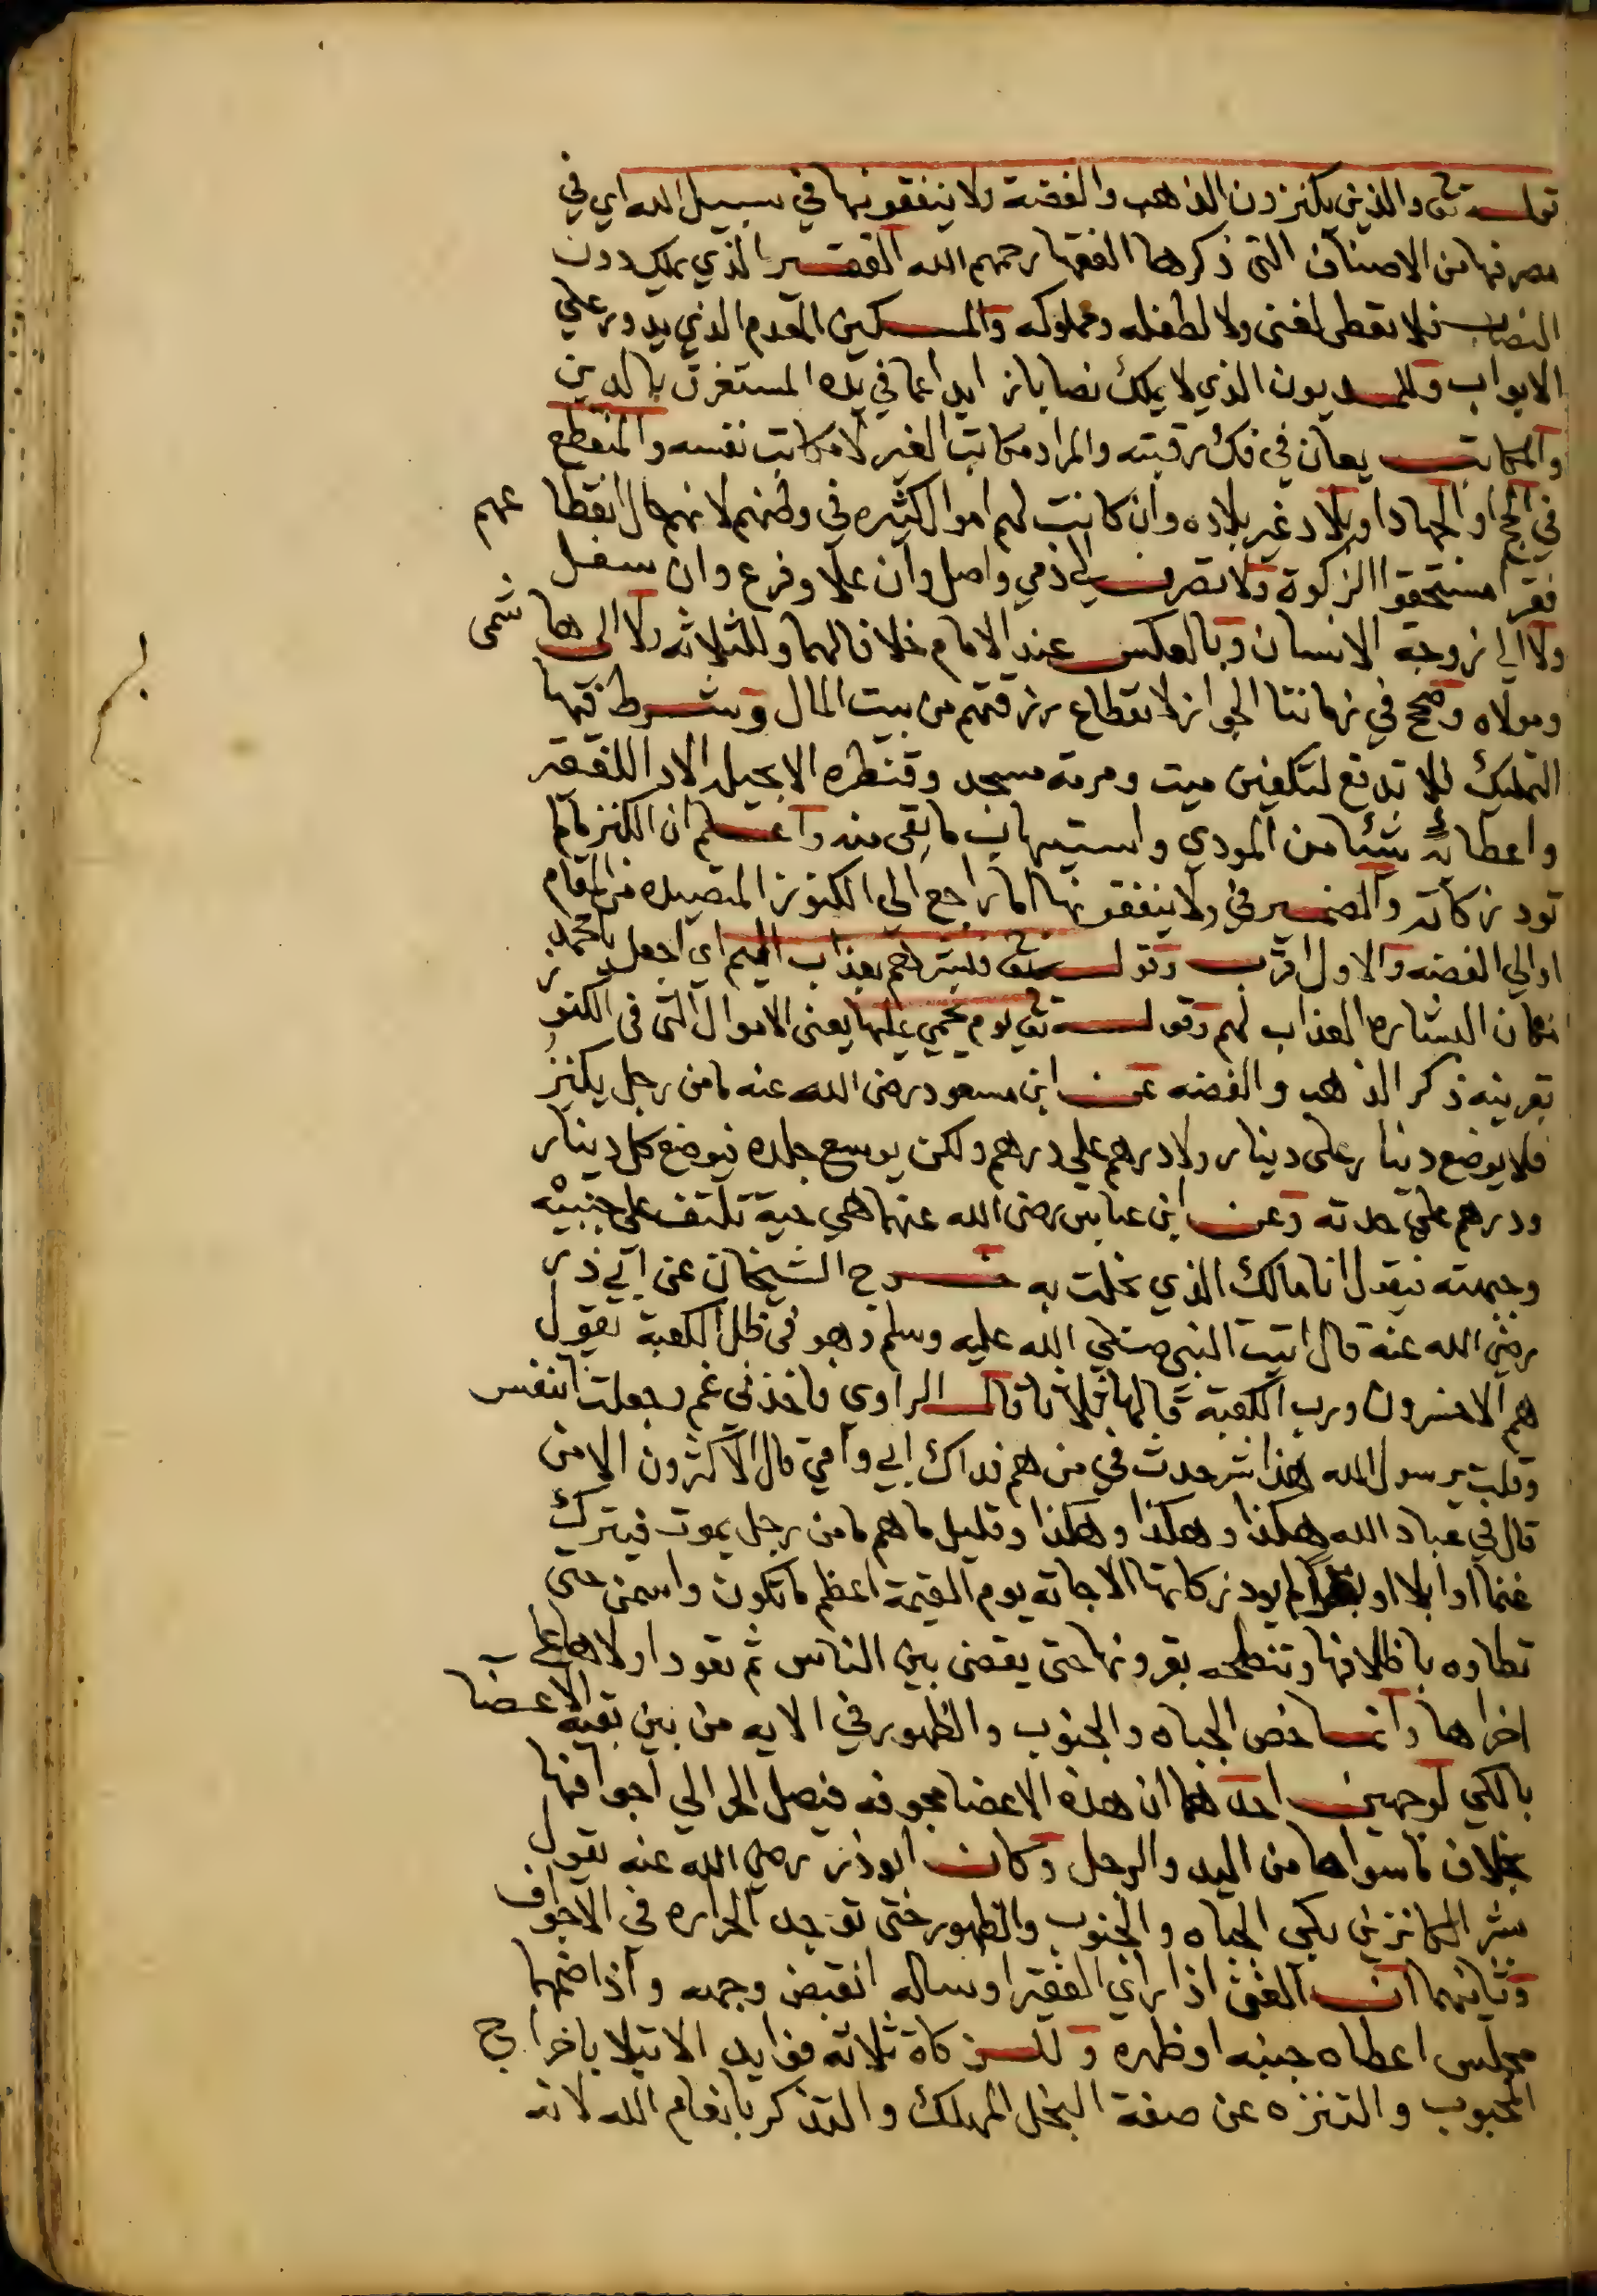 قوله تع والذين يكنزون الذهب والفضة ولا ينفقونها في سبيل الله اي في
مصرفها من الاصناف التي ذكرها الفقها رحمهم الله الفقير الذي يملك دون
النصاب فلا تعطى لغني ولا لطفله ومملوكه والمسكين المعدم الذي يدور علي
الابواب والمديون الذي لا يملك نصابا زايدا عما في يده المستغرق بالدين
والمكاتب يعان في فك رقبته والمراد مكاتب الغير لا مكاتب نفسه والمنقطع
في الحج او الجهاد او بلاد غير بلاده وان كانت لهم اموال كثيره في وطنهم لانهم حال انقطاعهم
فقرا مستحقوا الزكوة ولا تصرف الي ذمي واصل وان علا وفرع وان سفل
ولا الي زوجة الانسان وبالعكس عند الامام خلافا لهما وللثلاثه ولا الى هاشمى
ومولاه وصح في زماننا الجواز لانقطاع رزقهم من بيت المال وشرط فيها
التمليك فلا تدفع لتكفين ميت ومرمة مسجد وقنطره الا بحيلة الادا للفقير
واعطائه شئا من المودي واستيهاب ما بقى منه واعلم ان الكنز مالم
تود زكاته والضمير في ولا ينفقونها اما راجع الي الكنوز المتصيده من المقام
او الي الفضه والاول اقرب وقوله تع فبشرهم بعذاب اليم اي اجعل يا محمد
مكان البشاره العذاب لهم وقوله تع يوم يحمي عليها يعنى الاموال التى في الكنوز
بقرينه ذكر الذهب والفضه عن ابن مسعود رضى الله عنه ما من رجل يكنز
فلا يوضع دينار على دينار ولا درهم علي درهم ولكن يوسع جلده فيوضع كل دينار
ودرهم علي حدته وعن ابن عباس رضى الله عنهما هي حية تلتف على جنبيه
وجبهته فيقول انا مالك الذي بخلت به خرج الشيخان عن ابي ذر
رضي الله عنه قال اتيت النبي صلي الله عليه وسلم وهو في ظل الكعبة يقول
هم الاخسرون ورب الكعبة قالها ثلاثا قال الراوي فاخذني غم وجعلت اتنفس
وقلت يرسول الله هذا شر حدث في من هم فداك ابي وامي قال الاكثرون الا من
قال في عباد الله هكذا وهكذا وهكذا وقليل ما هم ما من رجل يموت فيترك
غنما او ابلا او بقرا لم يود زكاتها الا جاته يوم القيمة اعظم ما تكون واسمن حتى
تطاوه باظلافها وتنطحه بقرونها حتى يقضى بين الناس ثم تعود اولاها علي
اخراها وانما خص الجباه والجنوب والظهور في الايه من بين بقية الاعضا
بالكي لوجهين احدهما ان هذه الاعضا مجوفه فيصل الحر الي اجوافها
بخلاف ما سواها من اليد والرجل وكان ابو ذر رضي الله عنه يقول
بشر الكانزين بكي الجباه والجنوب والظهور حتى توجد الحراره في الاجواف
وثانيهما ان الغني اذا راي الفقير او ساله انقبض وجهه واذا ضمهما
مجلس اعطاه جنبه او ظهره وللزكاة ثلاثه فوايد الابتلا باخراج
المحبوب والتنزه عن صفة البخل المهلك والتذكر بانعام الله لانه